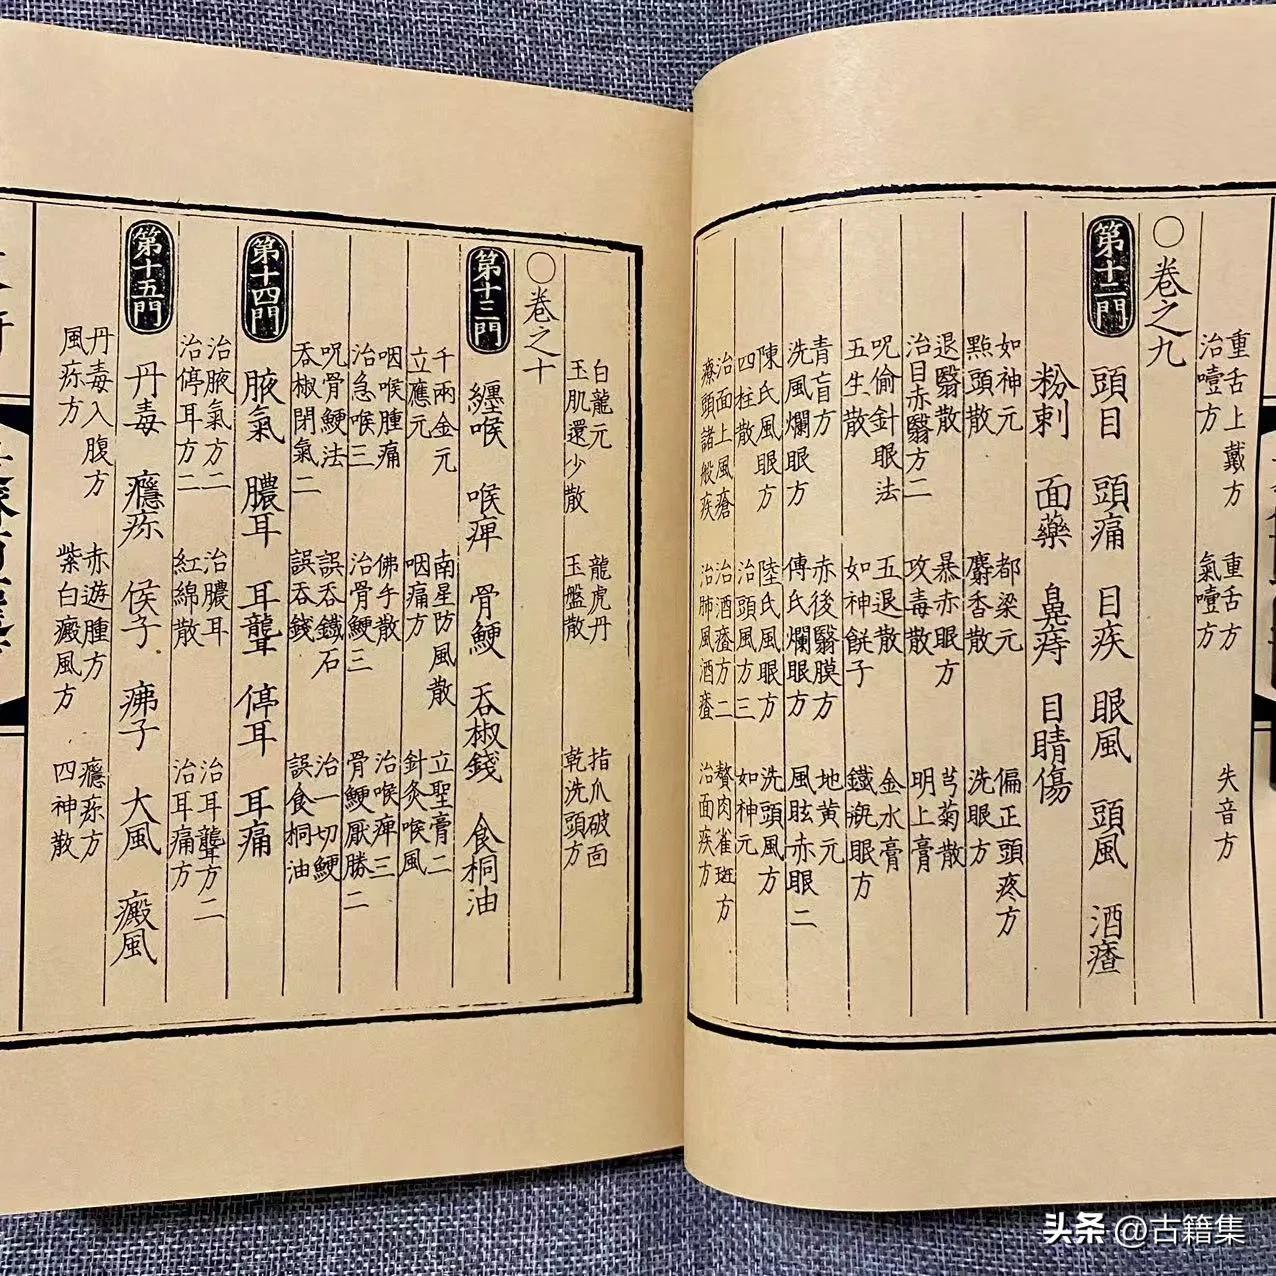 重舌上戴方 重舌方 失音方
治噎方 氣噎方
○卷之九
第十二門 頭目 頭痛 目疾 眼風 頭風 酒瘡
粉刺 面藥 鼻痔 目睛傷
如神元 都梁元 偏正頭疼方
點頭散 麝香散 洗眼方
退翳散 暴赤眼方 芎菊散
治目赤翳方二 攻毒散 明上膏
呪偷針眼法 五退散 金水膏
五生散 如神餅子 鐵𤬪眼方
青盲方 赤後翳膜方 地黃元
洗風爛眼方 傅氏爛眼方 風眩赤眼二
陳氏風眼方 陸氏風眼方 洗頭風方
四柱散 治頭風方三 如神元
治面上風瘡 治酒瘡方二 贅肉雀斑方
療頭諸般疾 治肺風酒瘡 治面疾方
白龍元 龍虎丹 指爪破面
玉肌還少散 玉盤散 乾洗頭方
○卷之十
第十三門 纏喉 喉痺 骨鯁 吞椒錢 食桐油
千兩金元 南星防風散 立聖膏二
立應元 咽痛方 針灸喉風
咽喉腫痛 佛手散 治喉痺三
治急喉三 治骨鯁三 骨鯁厭勝二
呪骨鯁法 誤吞鐵石 治一切鯁
吞椒閉氣二 誤吞錢 誤食桐油
第十四門 腋氣 膿耳 耳聾 停耳 耳痛
治腋氣方二 治膿耳 治耳聾方二
治停耳方二 紅綿散 治耳痛方
第十五門 丹毒 癮疹 㾮子 疿子 大風 癜風
丹毒入腹方 赤遊腫方 癮疹方
風疹方 紫白癜風方 四神散
头条 @古籍集